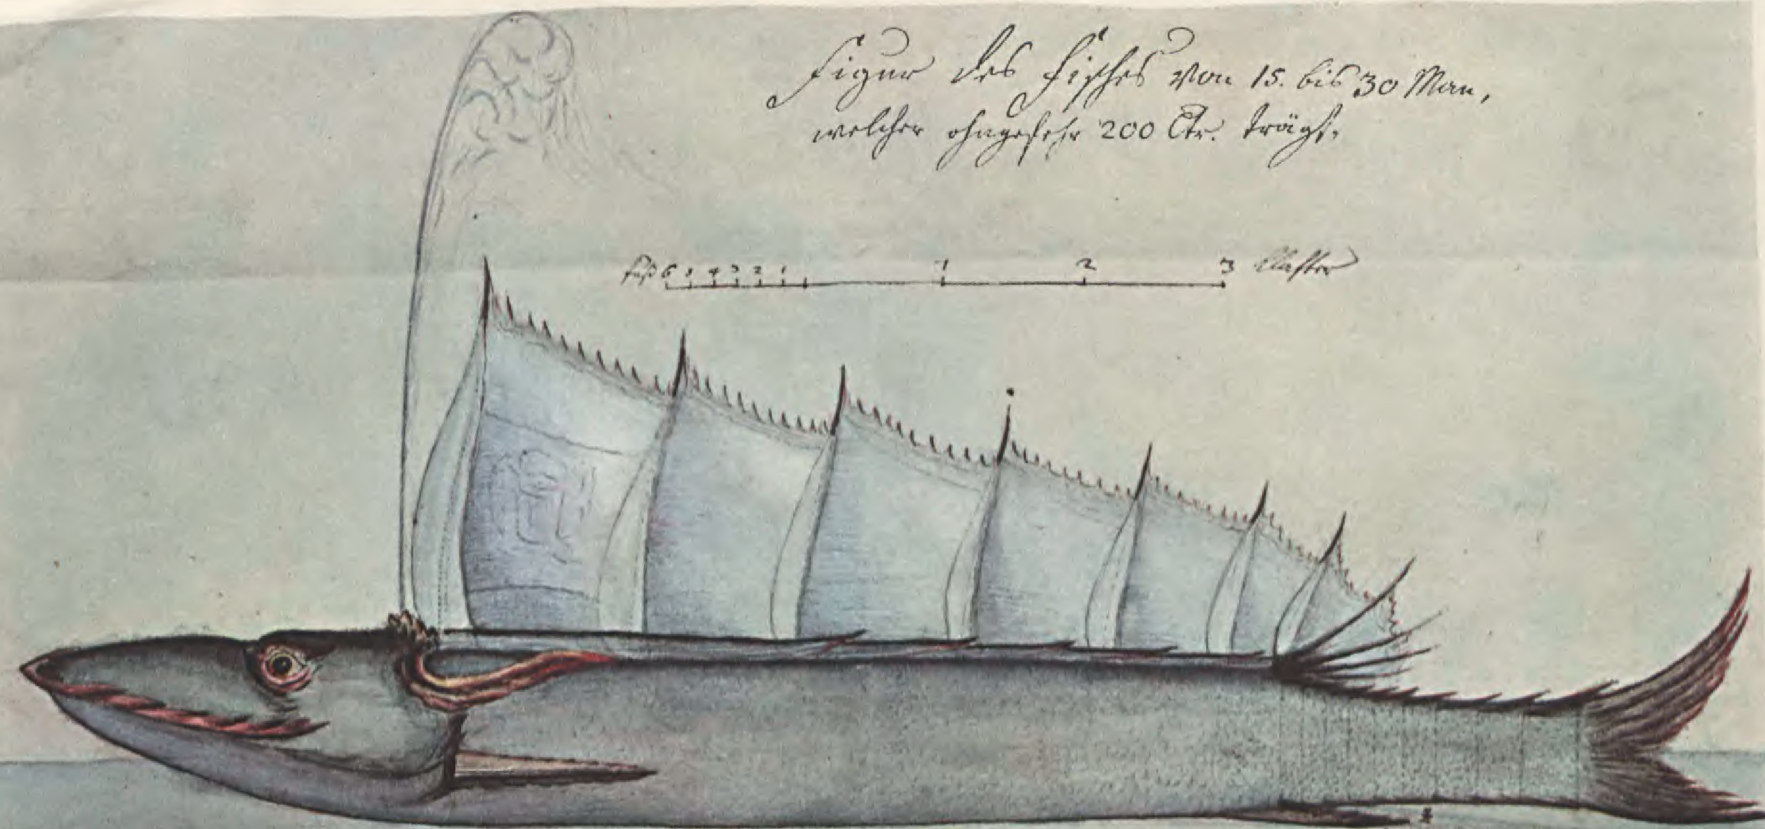 Figur des Fisches von 15. bis 30 Man,
welcher ohngefehr 200 Ctr. trägt.
Fuß 6 5 4 3 2 1 1 2 3 Klafter